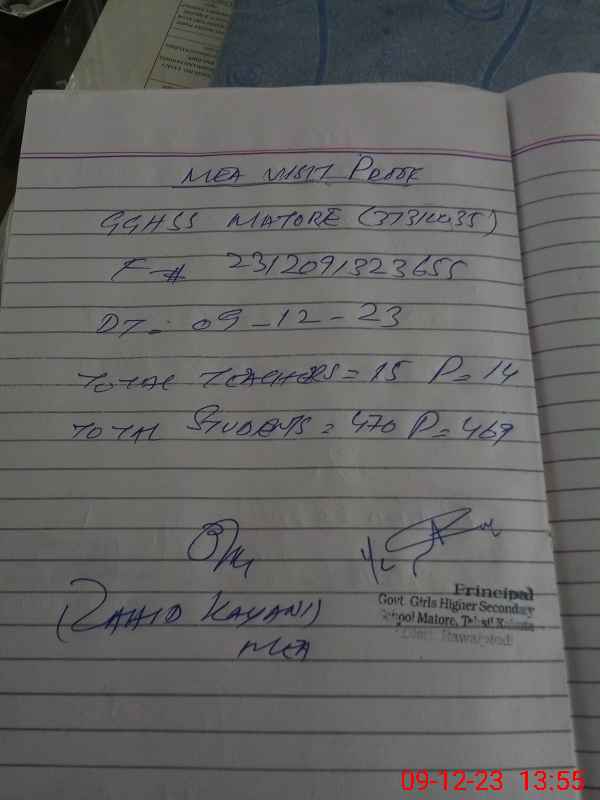 MEA VISIT PROOF
GGHSS MATORE (37310035)
F-# 2312091323655
DT=: 09-12-23
TOTAL TEACHERS = 15 P= 14
TOTAL STUDENTS = 470 P= 469
(ZAHID KAYANI)
MEA
Principal
Govt. Girls Higher Secondary
School Matore, Tehsil Kahuta
Distt: Rawalpindi
09-12-23 13:55